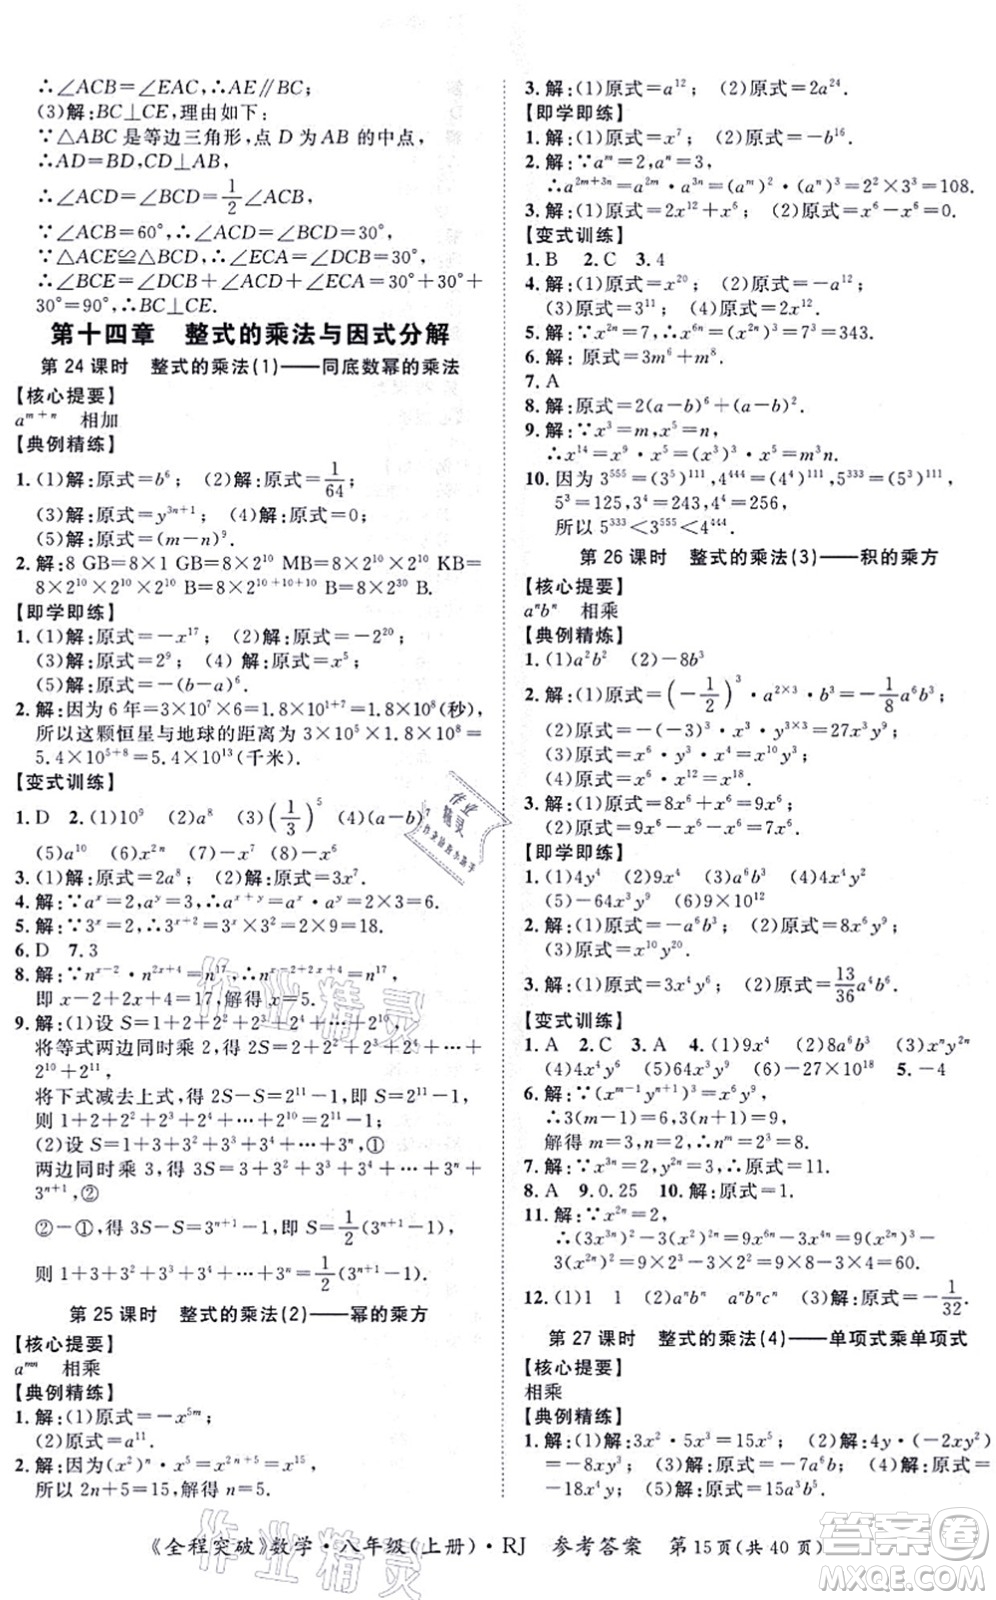 ∴∠ACB=∠EAC,∴AE∥BC;
(3)解:BC⊥CE,理由如下:
∵△ABC是等边三角形,点D为AB的中点,
∴AD=BD,CD⊥AB,
∴∠ACD=∠BCD=1/2∠ACB,
∵∠ACB=60°,∴∠BCD=30°,
∵△ACE≌△BCD,∴∠ECA=∠DCB=30°,
∴∠BCE=∠BCD+∠ACD+∠ECA=30°+30°+
30°=90°,∴BC⊥CE.
第十四章 整式的乘法与因式分解
第24课时 整式的乘法(1)——同底数幂的乘法
【核心提要】
a^{m+n} 相加
【典例精练】
1.(1)解:原式=b⁶; (2)解:原式=1/64;
(3)解:原式=y^{3n+1}; (4)解:原式=0;
(5)解:原式=(m-n)⁹.
2.解:8 GB=8×1 GB=8×2¹⁰ MB=8×2¹⁰×2¹⁰ KB=
8×2¹⁰×2¹⁰×2¹⁰ B=8×2^{10+10+10} B=8×2³⁰ B.
【即学即练】
1.(1)解:原式=-x¹⁷; (2)解:原式=-2²⁰;
(3)解:原式=2⁹; (4)解:原式=x⁵;
(5)解:原式=-(b-a)⁶.
2.解:因为6年=3×10⁷×6=18×10⁷=1.8×10⁸(秒),
所以这颗恒星与地球的距离为3×10⁵×1.8×10⁸=
5.4×10^{5+8}=5.4×10¹³(千米).
【变式训练】
1.D 2.(1)10⁹ (2)a⁸ (3)(1/3)⁵ (4)(a-b)⁷
(5)a¹⁰ (6)-x¹² (7)-8 (8)-x⁶
3.(1)解:原式=2a⁸; (2)解:原式=3x⁷.
4.解:∵aˣ=2,aʸ=3,∴a^{x+y}=aˣ·aʸ=2×3=6.
5.解:∵3ˣ=2,∴3^{x+2}=3ˣ×3²=2×9=18.
6.D 7.3
8.解:∵n^{x-2}·n^{2x+4}=n^{x-2+2x+4}=n¹⁷,
即x-2+2x+4=17,解得x=5.
9.解:(1)设S=1+2+2²+2³+2⁴+…+2¹⁰,
将等式两边同时乘2,得2S=2+2²+2³+2⁴+…+
2¹⁰+2¹¹,
将下式减去上式,得2S-S=2¹¹-1,即S=2¹¹-1,
则1+2+2²+2³+2⁴+…+2¹⁰=2¹¹-1;
(2)设S=1+3+3²+3³+3⁴+…+3ⁿ,①
两边同时乘3,得3S=3+3²+3³+3⁴+…+3ⁿ+
3^{n+1},②
②-①,得3S-S=3^{n+1}-1,即S=1/2(3^{n+1}-1),
则1+3+3²+3³+3⁴+…+3ⁿ=1/2(3^{n+1}-1).
第25课时 整式的乘法(2)——幂的乘方
【核心提要】
a^{mn} 相乘
【典例精练】
1.解:(1)原式=-x^{5m};
(2)原式=a¹¹.
2.解:因为(x²)ⁿ·x⁵=x^{2n+5}=x¹⁵,
所以2n+5=15,解得n=5.
3.解:(1)原式=a¹²; (2)原式=2a²⁴.
【即学即练】
1.解:(1)原式=x⁷; (2)原式=-b¹⁶.
2.解:∵aᵐ=2,aⁿ=3,
∴a^{2m+3n}=a^{2m}·a^{3n}=(aᵐ)²·(aⁿ)³=2²×3³=108.
3.解:(1)原式=2x¹²+x⁶; (2)原式=x⁶-x⁶=0.
【变式训练】
1.B 2.C 3.4
4.解:(1)原式=-2¹²; (2)原式=-a¹²;
(3)原式=3¹¹; (4)原式=-5b⁹.
5.解:∵xⁿ=7,∴x^{3n}=(xⁿ)³=7³=343.
6.解:原式=3m⁶-m⁶=2m⁶.
7.A
8.解:原式=2(a-b)⁶+(a-b)⁶=3(a-b)⁶.
9.解:∵x³=m,x⁵=n,
∴x¹⁴=x⁹·x⁵=(x³)³·x⁵=m³n.
10.因为3⁵⁵⁵=(3⁵)¹¹¹,4⁴⁴⁴=(4⁴)¹¹¹,5³³³=(5³)¹¹¹,
5³=125,3⁵=243,4⁴=256,
所以5³³³<3⁵⁵⁵<4⁴⁴⁴.
第26课时 整式的乘法(3)——积的乘方
【核心提要】
aⁿbⁿ 相乘
【典例精炼】
1.(1)a²b² (2)-8b³
2.解:(1)原式=(-1/2)³·a^{2×3}·b³=-1/8a⁶b³;
(2)原式=-(-3)³·x^{2×3}·y^{3×3}=27x⁶y⁹;
(3)原式=x⁶·y³·x⁴·y⁴=x¹⁰y⁷;
(4)原式=x⁶·x¹²=x¹⁸.
3.解:(1)原式=x³y⁶+8x³y⁶=9x³y⁶;
(2)原式=9x⁶-x⁶-x⁶=7x⁶.
【即学即练】
1.(1)4y⁴ (2)9x⁴ (3)a³b⁶ (4)9x⁴y²
(5)-64x³y⁹ (6)9×10¹⁰
2.解:(1)原式=-a⁶b³; (2)原式=81x⁸y¹²;
(3)原式=x¹⁰y²⁰.
3.解:(1)原式=3x⁴y⁶; (2)原式=13/36a²x⁴.
【变式训练】
1.A 2.C 3.A 4.(1)9x⁴ (2)8a⁶b³ (3)xⁿy^{2n}
(4)4x⁶ (5)64x³y⁹ (6)-27×10¹⁸ 5.-4
6.解:∵(x^{m-1}y^{n+1})³=x⁶y⁹,
∴3(m-1)=6,3(n+1)=9,
解得m=3,n=2,∴nᵐ=2³=8.
7.解:∵x^{3n}=5,y^{2n}=3,∴原式=11.
8.A 9.0.25 10.解:原式=7.
11.解:∵x^{2n}=2,
∴(3x^{3n})²-3(x²)^{2n}=9x^{6n}-3x^{4n}=9(x^{2n})³-
3(x^{2n})²=9×2³-3×2²=9×8-3×4=60.
12.(1)1 1 (2)aⁿbⁿ aⁿbⁿcⁿ (3)解:原式=-1/32.
第27课时 整式的乘法(4)——单项式乘单项式
【核心提要】
相乘
【典例精练】
1.解:(1)解:3x²·5x³=15x⁵; (2)解:4y·(-2xy²)=
-8xy³; (3)解:原式=-7a⁶b²; (4)解:原式=
-18x⁴y⁵; (5)解:原式=15x³y³.
《全程突破》数学·八年级(上册)·RJ 参考答案 第15页(共40页)
作业精灵
作业精灵
作业
精灵
答案圈
MXQE.COM